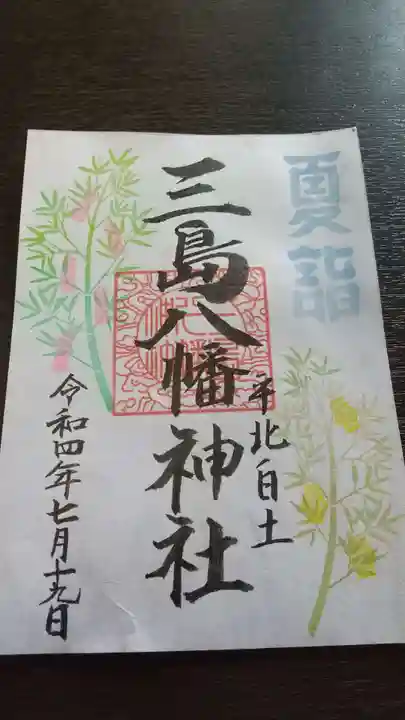 夏詣
平北白土
三島八幡神社
令和四年七月十九日